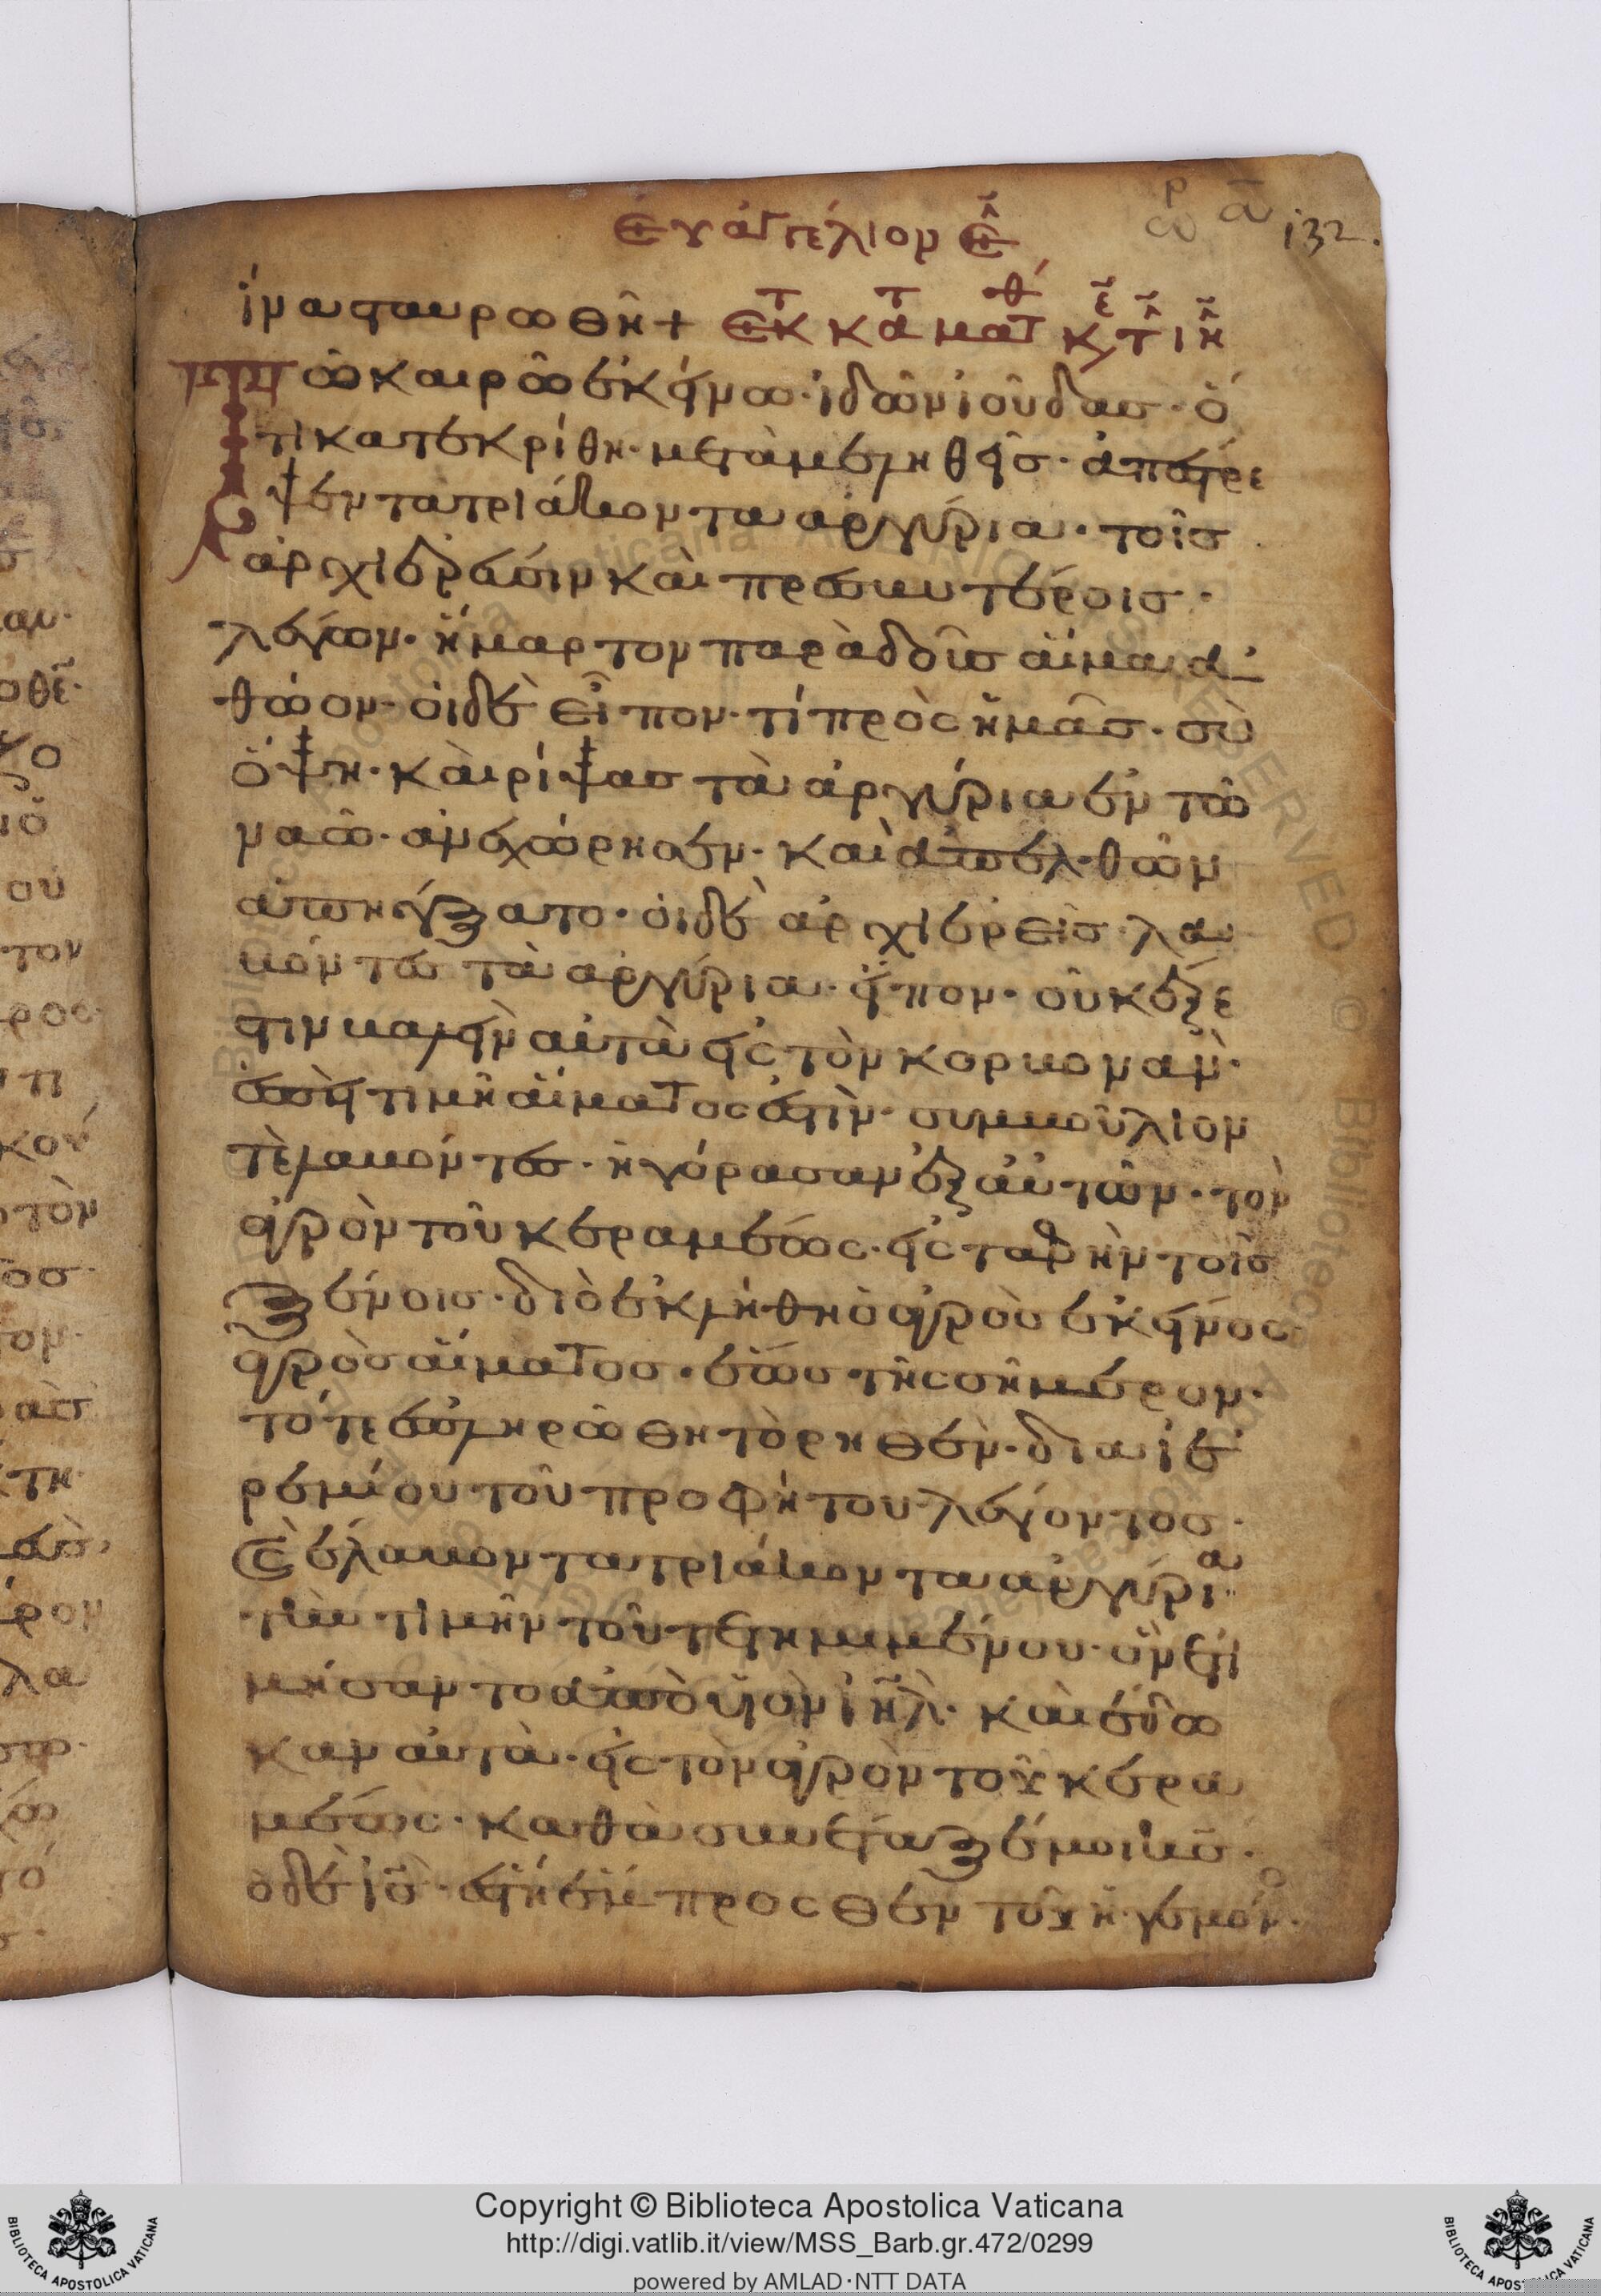 Εὐάγγέλιον ε̑
132.
ἵνα σταυρωθῆ + Ἐκ κατ ματθ κε
Τῶ καιρῶ ἐκείνω· ἰδὼν ἰοῦδας· ὅ
τι κατεκρίθη· μεταμεληθεὶς· ἀπέστρε
ψεν τα τριάκοντα αργύρια· τοῖς
ἀρχιερεύσιν καὶ πρεσβυτέροις·
λέγων· ἥμαρτον παραδοὺς αἷμα ἀ
θώον· οἱ δὲ εἶπον· τί πρὸς ἡμᾶς· σὺ
ὄψη· κὰι ρίψας τὰ ἀργύρια ἐν τῶ
ναῶ· ἀνεχώρησεν· καὶ ἀπελθὼν
ἀπήγξατο· οἱ δὲ ἀρχιερεῖς· λα
βόντες τὰ αργύρια· εἶπον· οὐκ ἔξε
στιν βαλεὴν αὐτὰ εἰς τὸν κορβοναν·
ἐπεὶ τιμὴ αἵματος ἐστὶν· συμβοῦλιον
τὲ λαβόντες· ἠγόρασαν ἐξ αὐτῶν· τὸν
ἀγρὸν τοῦ κεραμέως· εἰς ταφὴν τοῖς
ξένοις· διὸ ἐκλήθη ὁ ἀγρὸς ἐκεῖνος·
ἀγρὸς αἵματος· ἕως τῆς σήμερον·
τότε ἐπληρώθη τὸ ρηθὲν· δια ἱε
ρεμίου τοῦ προφήτου λέγοντος·
Καὶ ἔλαβον τα τριάκοντα αργύρια
τὴν τιμὴν τοῦ τετημιμένου· ὃν ετι
μήσαν το ἀπὸ υἱὸν ιηλ· κὰι έδω
καν αὐτὰ· εἰς τὸν ἀγρὸν τοῦ κερα
μέως· καθὰ συνεταξέ μοι κς·
ὁ δὲ ις· ἔστη έμπροσθεν τοῦ ἡγεμόνο
Copyright © Biblioteca Apostolica Vaticana
http://digi.vatlib.it/view/MSS_Barb.gr.472/0299
powered by AMLAD·NTT DATA